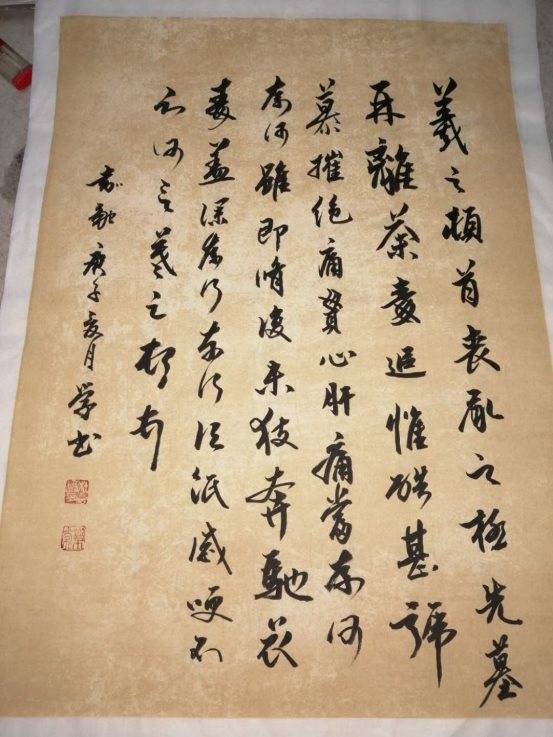 羲之頓首喪亂之極先墓
再離荼毒追惟酷甚號
慕摧絕痛貫心肝痛當奈何
奈何雖即脩復未獲奔馳哀
毒益深奈何奈何臨紙感哽不
知何言羲之頓首
庚子夏月学书